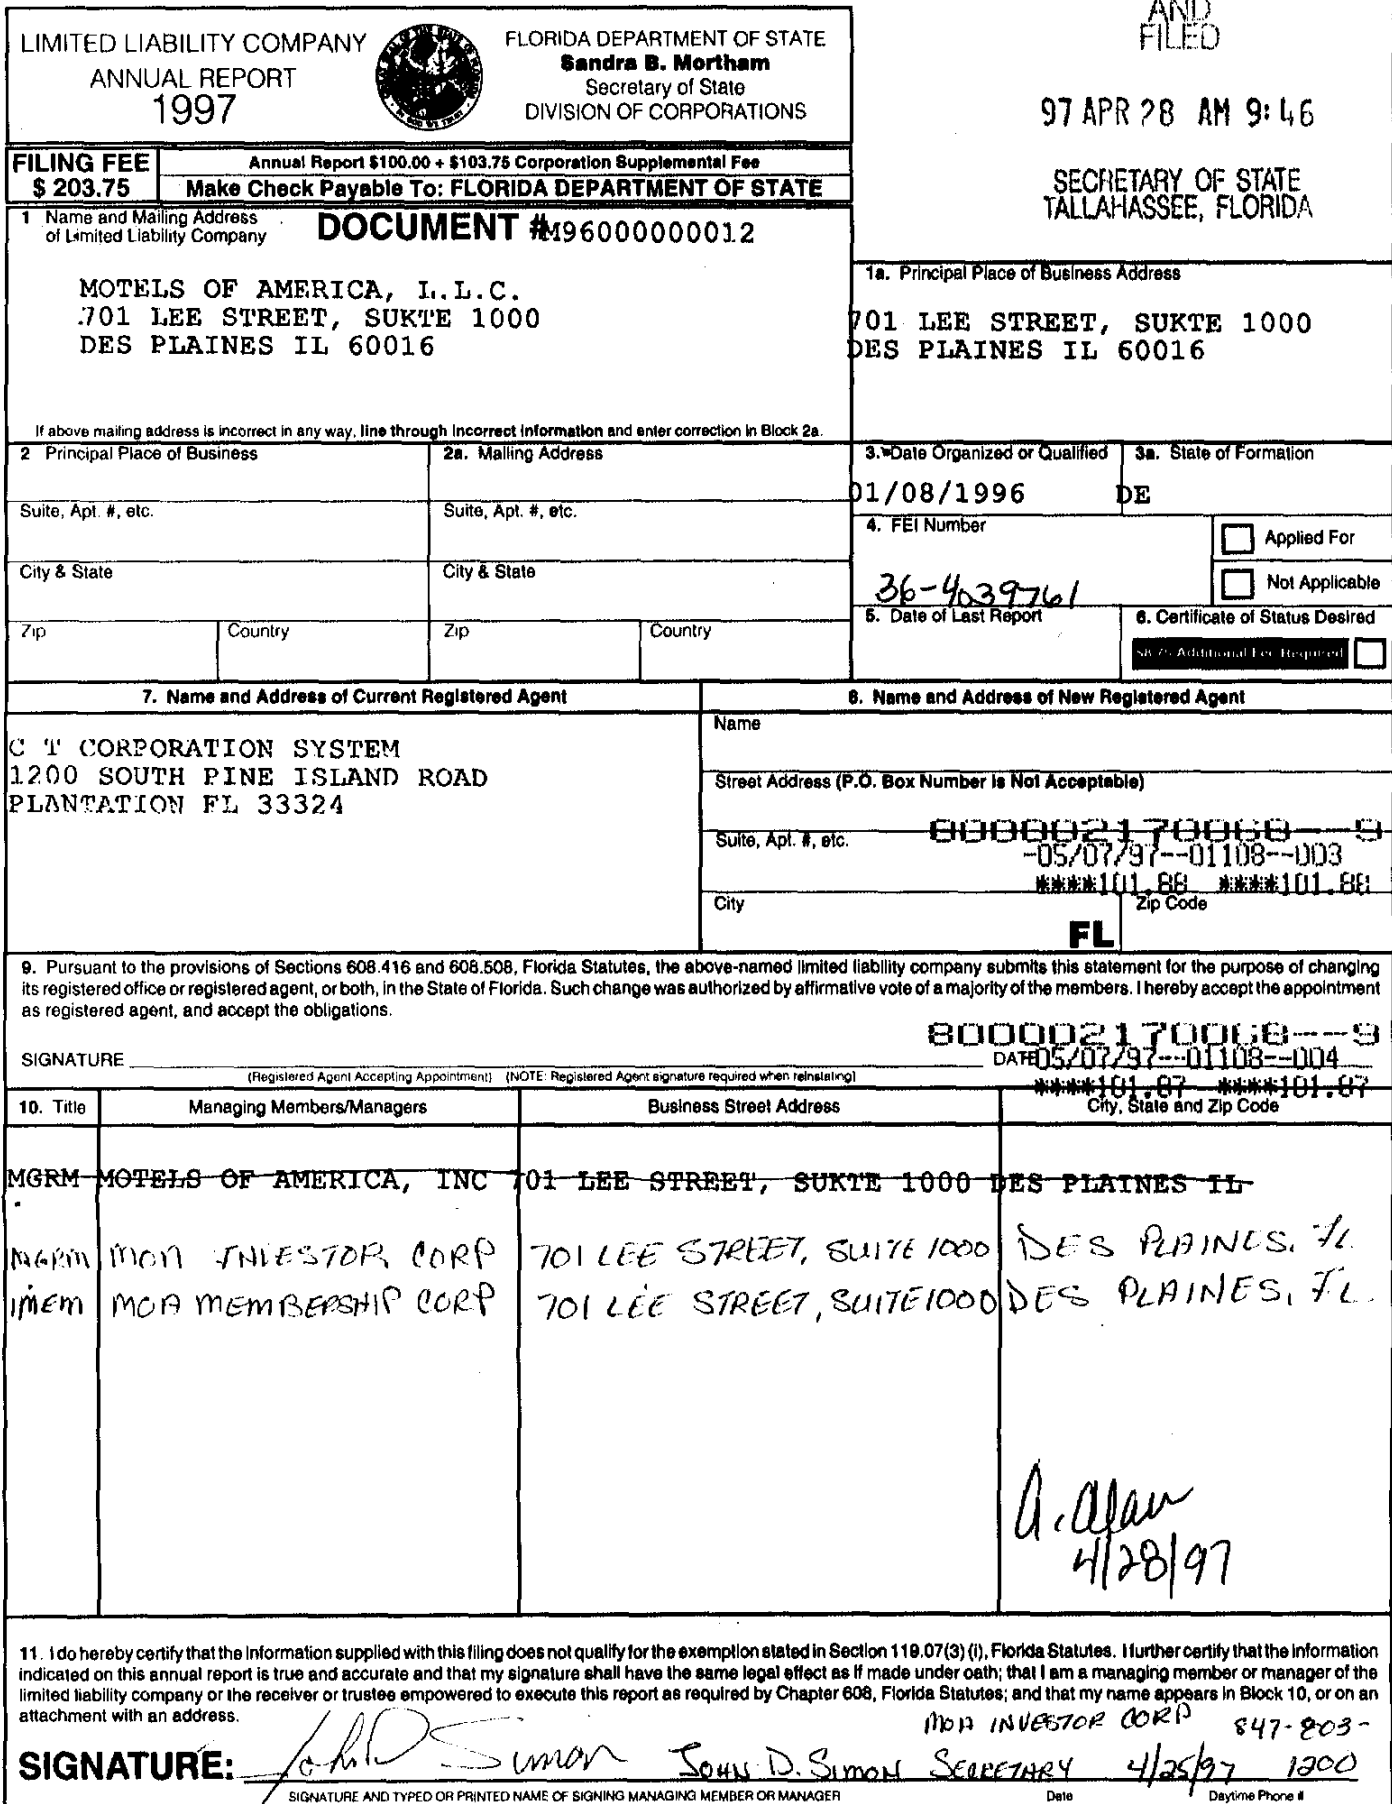 AND
FILED
LIMITED LIABILITY COMPANY
ANNUAL REPORT
1997
FLORIDA DEPARTMENT OF STATE
Sandra B. Mortham
Secretary of State
DIVISION OF CORPORATIONS
97 APR 28 AM 9:46
SECRETARY OF STATE
TALLAHASSEE, FLORIDA
FILING FEE
$ 203.75
Annual Report $100.00 + $103.75 Corporation Supplemental Fee
Make Check Payable To: FLORIDA DEPARTMENT OF STATE
1 Name and Mailing Address
of Limited Liability Company
DOCUMENT #M96000000012
MOTELS OF AMERICA, L.L.C.
701 LEE STREET, SUKTE 1000
DES PLAINES IL 60016
1a. Principal Place of Business Address
701 LEE STREET, SUKTE 1000
DES PLAINES IL 60016
If above mailing address is incorrect in any way, line through incorrect information and enter correction in Block 2a.
2 Principal Place of Business
2a. Mailing Address
3. Date Organized or Qualified
3a. State of Formation
01/08/1996
DE
Suite, Apt. #, etc.
Suite, Apt. #, etc.
4. FEI Number
36-4039761
Applied For
Not Applicable
City & State
City & State
5. Date of Last Report
6. Certificate of Status Desired
$8.75 Additional Fee Required
Zip
Country
Zip
Country
7. Name and Address of Current Registered Agent
8. Name and Address of New Registered Agent
C T CORPORATION SYSTEM
1200 SOUTH PINE ISLAND ROAD
PLANTATION FL 33324
Name
Street Address (P.O. Box Number is Not Acceptable)
800002170068--9
Suite, Apt. #, etc.
-05/07/97--01108--003
****101.88 ****101.88
City
FL
Zip Code
9. Pursuant to the provisions of Sections 608.416 and 608.508, Florida Statutes, the above-named limited liability company submits this statement for the purpose of changing
its registered office or registered agent, or both, in the State of Florida. Such change was authorized by affirmative vote of a majority of the members. I hereby accept the appointment
as registered agent, and accept the obligations.
800002170068--9
SIGNATURE
DATE
05/07/97--01108--004
****101.87 ****101.87
(Registered Agent Accepting Appointment) (NOTE: Registered Agent signature required when reinstating)
10. Title
Managing Members/Managers
Business Street Address
City, State and Zip Code
MGRM MOTELS OF AMERICA, INC 701 LEE STREET, SUKTE 1000 DES PLAINES IL
MGRM MOA INVESTOR CORP 701 LEE STREET, SUITE 1000 DES PLAINES, IL
MEM MOA MEMBERSHIP CORP 701 LEE STREET, SUITE 1000 DES PLAINES, IL.
4/28/97
11. I do hereby certify that the information supplied with this filing does not qualify for the exemption stated in Section 119.07(3) (i), Florida Statutes. I further certify that the information
indicated on this annual report is true and accurate and that my signature shall have the same legal effect as if made under oath; that I am a managing member or manager of the
limited liability company or the receiver or trustee empowered to execute this report as required by Chapter 608, Florida Statutes; and that my name appears in Block 10, or on an
attachment with an address.
MOA INVESTOR CORP 847-803-
SIGNATURE: John D Simon JOHN D. SIMON SECRETARY 4/25/97 1200
SIGNATURE AND TYPED OR PRINTED NAME OF SIGNING MANAGING MEMBER OR MANAGER
Date
Daytime Phone #